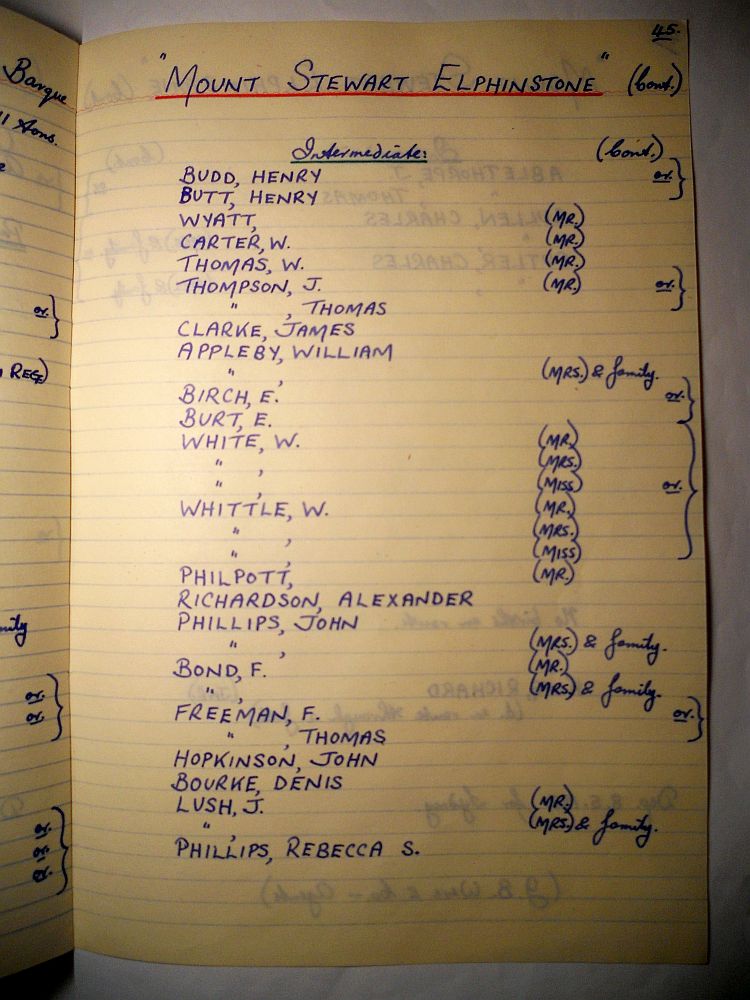 45.
"MOUNT STEWART ELPHINSTONE" (Cont.)
Intermediate: (Cont.)
BUDD, HENRY or.}
BUTT, HENRY
WYATT, (MR.)
CARTER, W. (MR.)
THOMAS, W. (MR.)
THOMPSON, J. (MR) or.}
" , THOMAS
CLARKE, JAMES
APPLEBY, WILLIAM
" , (MRS.) & family.
BIRCH, E. or.}
BURT, E.
WHITE, W. (MR.)
" , (MRS.)
" , (MISS) or.}
WHITTLE, W. (MR.)
" , (MRS.)
" , (MISS)
PHILPOTT, (MR.)
RICHARDSON, ALEXANDER
PHILLIPS, JOHN
" , (MRS.) & family.
BOND, F. (MR.)
" , (MRS.) & family.
FREEMAN, F. or.}
" , THOMAS
HOPKINSON, JOHN
BOURKE, DENIS
LUSH, J. (MR.)
" , (MRS.) & family.
PHILLIPS, REBECCA S.
Barque
Tons.
or.}
REGE)
or.
or.}
or.
or.}
or.